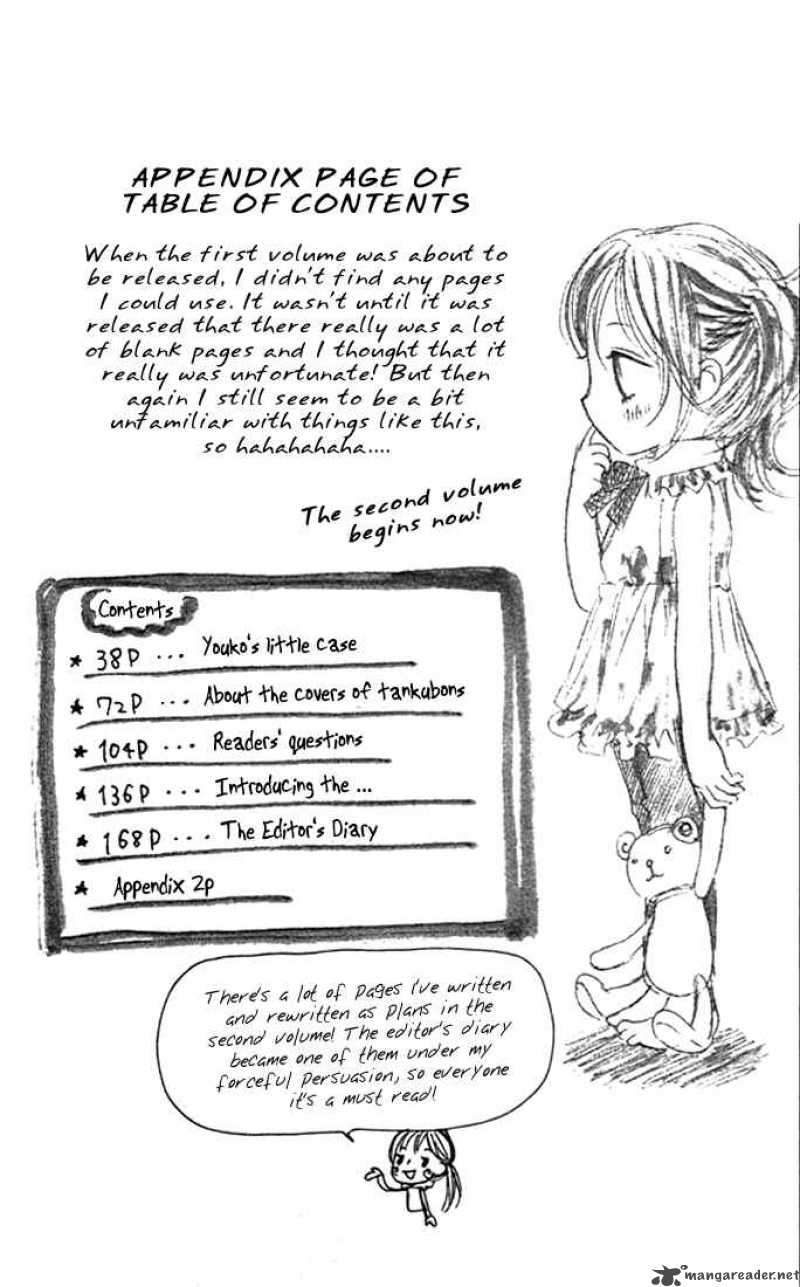 APPENDIX PAGE OF
TABLE OF CONTENTS
When the first volume was about to
be released, I didn't find any pages
I could use. It wasn't until it was
released that there really was a lot
of blank pages and I thought that it
really was unfortunate! But then
again I still seem to be a bit
unfamiliar with things like this,
so hahahahaha....
The second volume
begins now!
Contents
★ 38P ... Youko's little case
★ 72P ... About the covers of tankubons
★ 104P ... Readers' questions
★ 136P ... Introducing the ...
★ 168P ... The Editor's Diary
★ Appendix 2p
There's a lot of pages I've written
and rewritten as plans in the
second volume! The editor's diary
became one of them under my
forceful persuasion, so everyone
it's a must read!
mangareader.net